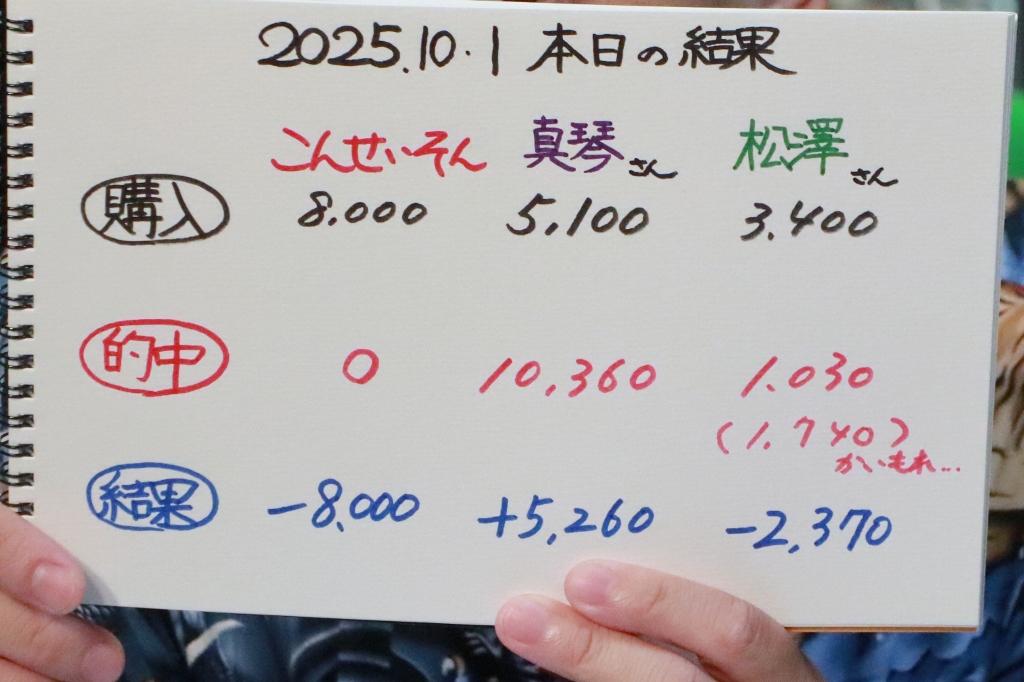 2025.10.1 本日の結果
こんせいそん 真琴さん 松澤さん
購入 8.000 5,100 3.400
的中 0 10,360 1.030
(1.740)
かいもれ...
結果 -8,000 +5,260 -2,370